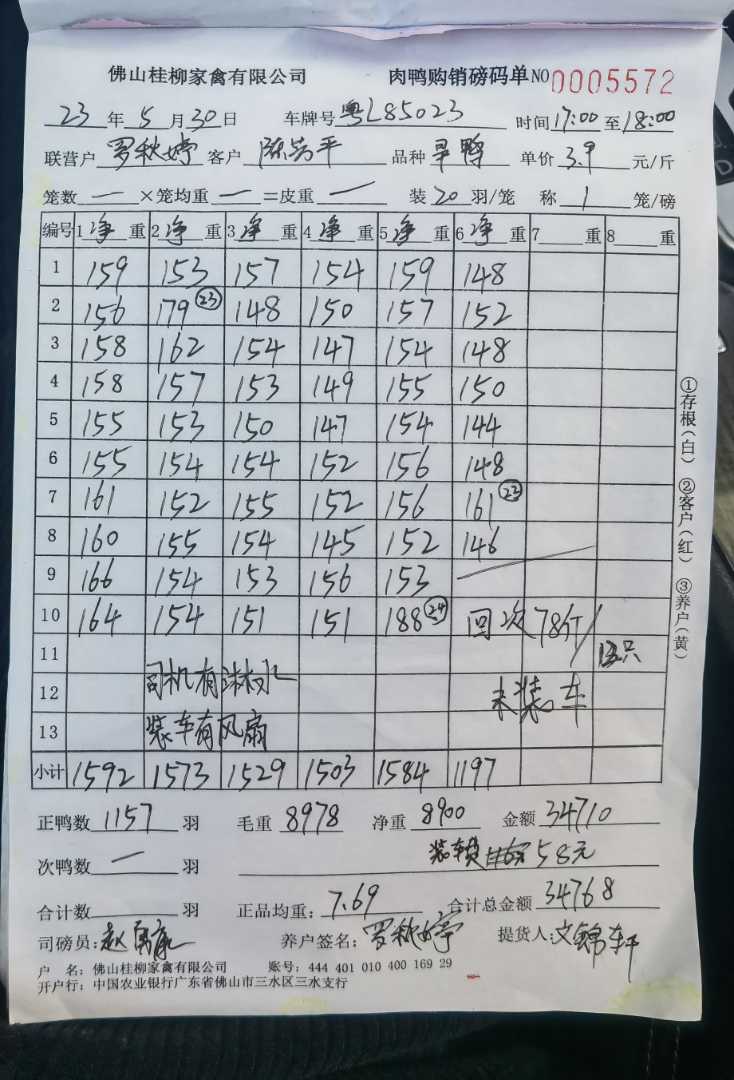 佛山桂柳家禽有限公司 肉鸭购销磅码单 NO 0005572
23 年 5 月 30 日 车牌号 粤L85023 时间 17:00 至 18:00
联营户 罗秋婷 客户 品种 旱鸭 单价 3.9 元/斤
笼数 一 ×笼均重 一 =皮重 一 装 20 羽/笼 称 1 笼/磅
编号 1 净 重 2 净 重 3 净 重 4 净 重 5 净 重 6 净 重 7 重 8 重
1 159 153 157 154 159 148
2 156 179 (23) 148 150 157 152
3 158 162 154 147 154 148
4 158 157 153 149 155 150
5 155 153 150 147 154 144
6 155 154 154 152 156 148
7 161 152 155 152 156 161 (22)
8 160 155 154 145 152 146
9 166 154 153 156 153
10 164 154 151 151 188 (24) 回次 78斤/
11 只
12 司机有淋水 未装车
13 装车有风扇
小计 1592 1573 1529 1503 1584 1197
正鸭数 1157 羽 毛重 8978 净重 8900 金额 34710
次鸭数 一 羽 58元
合计数 羽 正品均重: 7.69 合计总金额 34768
司磅员: 养户签名: 罗秋婷 提货人: 文锦轩
户 名: 佛山桂柳家禽有限公司 账号: 444 401 010 400 169 29
开户行: 中国农业银行广东省佛山市三水区三水支行
①存根(白) ②客户(红) ③养户(黄)